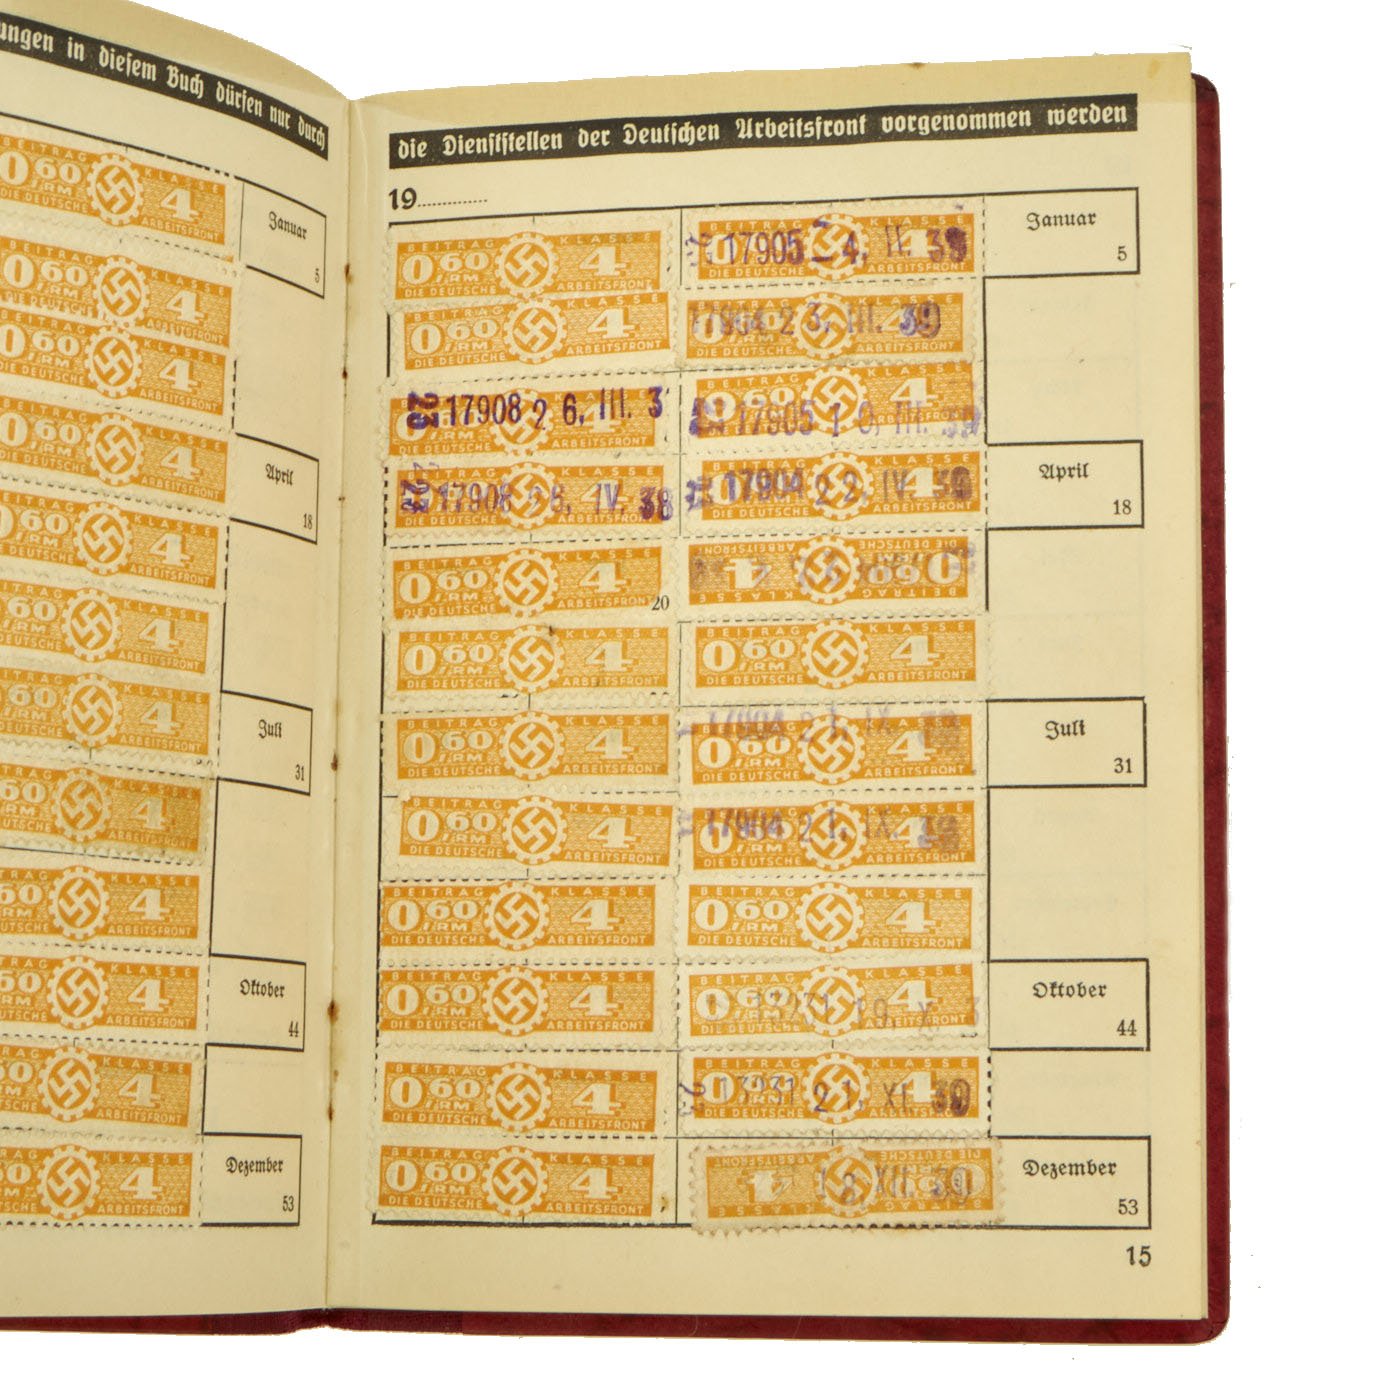 ungen in diesem Buch dürfen nur durch
BEITRAG KLASSE
0 60 RM 4
DIE DEUTSCHE ARBEITSFRONT
Januar
5
April
18
Juli
31
Oktober
44
Dezember
53
die Dienststellen der Deutschen Arbeitsfront vorgenommen werden
19
BEITRAG KLASSE
0 60 RM 4
DIE DEUTSCHE ARBEITSFRONT
17905 – 4. II. 39
17904 2 3. III. 39
23 17908 2 6. III. 3
17905 1 0. III. 39
23 17908 2 6. IV. 38
17904 2 2. IV. 39
20
17904 2 1. IX.
17904 2 1. IX.
13231 1 9. X. 3
13231 2 1. XI. 39
1 8 XII. 39
Januar
5
April
18
Juli
31
Oktober
44
Dezember
53
15